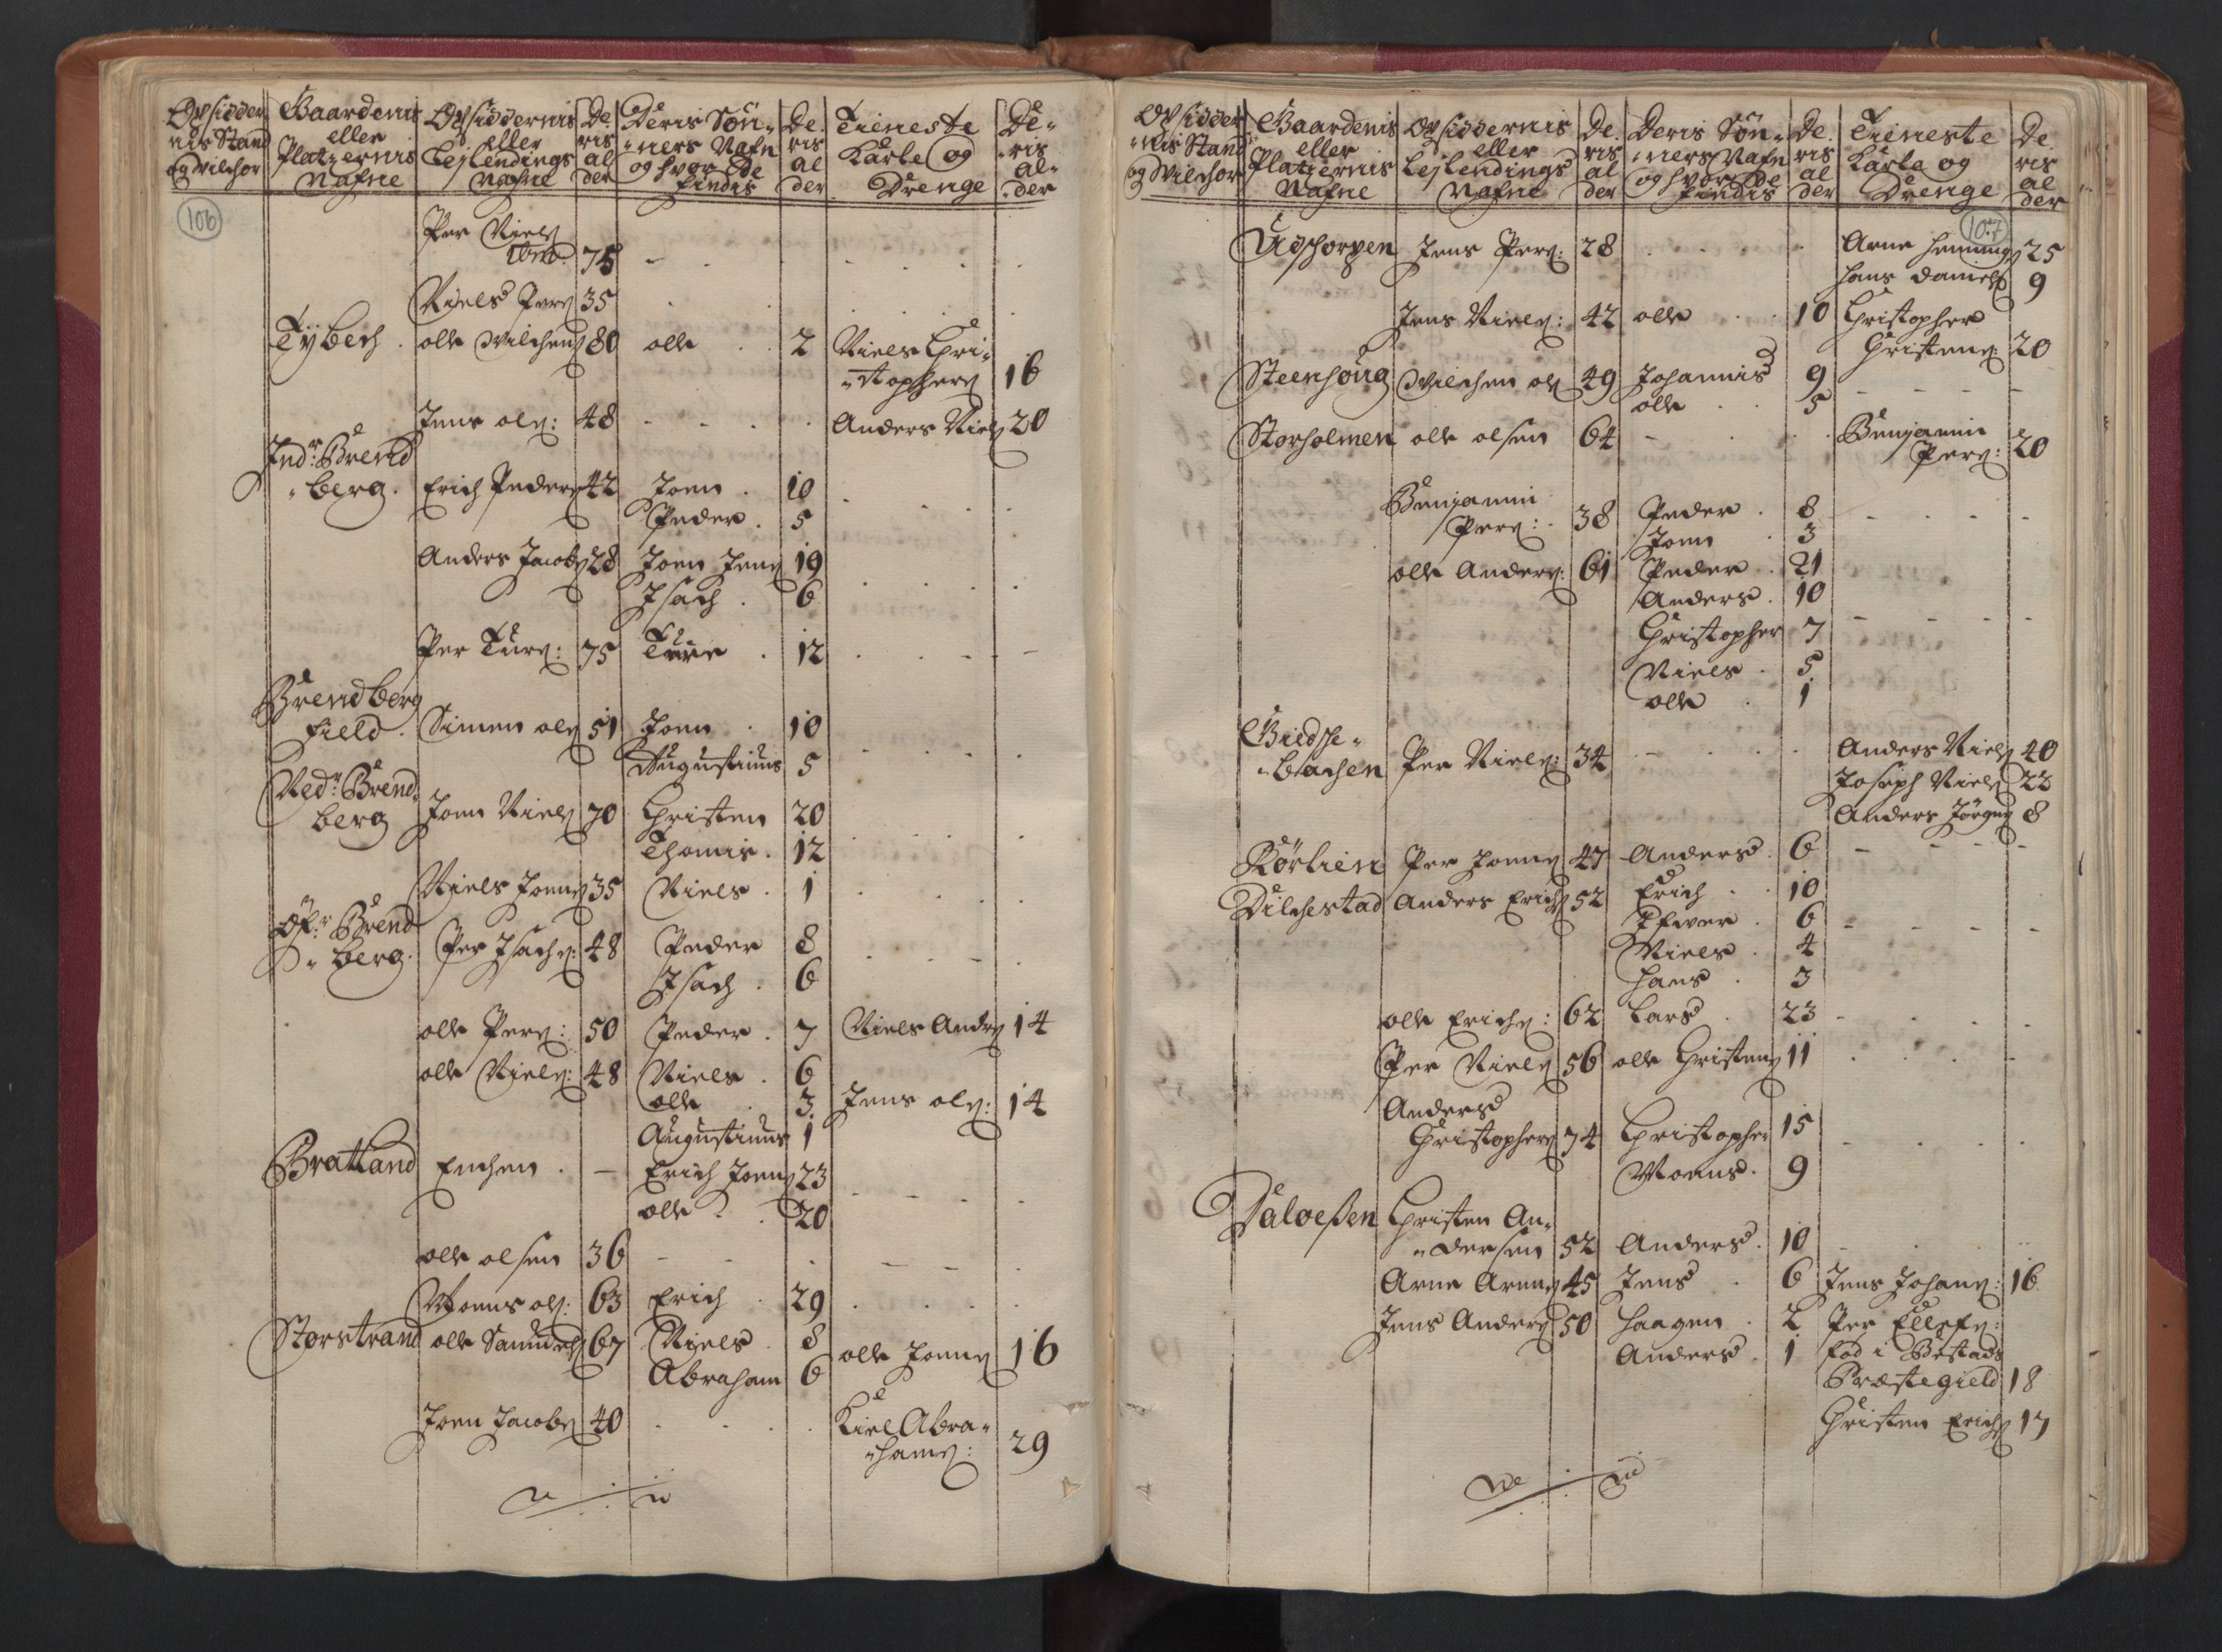 Opsidder
nis Stand
og Vilchor
Gaardenis
eller
Platzernis
Nafne
Opsiddernis
eller
Lejlendings
Nafne
De
ris
al
der
Deris Søn-
ners Nafn
og hvor de
findis
De
ris
al
der
Tieneste
Karle og
Drenge
De-
ris
al-
der
106
Per Niels
75 - -
Niels Pers 35
Tÿbech . olle Vilchens 80 olle . . 2 Niels Chri-
stophers 16
Jens ols: 48 - - Anders Niels 20
Indr: Brend
berg . Erich Peders 42 Joen . 10
Peder . 5
Anders Jacobs 28 Joen Jens 19
Isach . 6
Per Turs: 75 Ture . 12
Brendberg
field . Simen ols 51 Joen . 10
Augustinus 5
Nedr: Brend-
berg Joen Niels 70 Christen 20
Thomis . 12
Niels Joens 35 Niels . 1
Øfr: Brend
berg . Per Isachs: 48 Peder 8
Isach . 6
olle Pers: 50 Peder . 7 Niels Anders 14
olle Niels: 48 Niels . 6
olle . 3 Jens ols: 14
Augustinus 1
Bratland Enchen . - Erich Joens 23
olle . . 20
olle olsen 36 - -
Moens ols: 63 Erich . 29
Storstrand olle Samuels 67 Niels . 8
olle Joens 16
Abraham 6
Joen Jacobs 40 Kiel Abra-
hams: 29
Opsidder
nis Stand
og Vilchor
Gaardenis
eller
Platzernis
Nafne
Opsiddernis
eller
Lejlendings
Nafne
De
ris
al
der
Deris Søn-
ners Nafn
og hvor de
findis
De
ris
al
der
Tieneste
Karle og
Drenge
De
ris
al
der
107
Udschorpen Jens Pers: 28 Arne Hennings 25
Hans Daniels 9
Jens Niels: 42 olle . . 10 Christopher
Christens: 20
Steenhoug Vilchen ols 49 Johannis 9
olle . . 5
Storholmen olle olsen 64 - Benjamin
Pers: 20
Benjamin
Pers: 38 Peder . 8
Joen . 3
olle Anders: 61 Peder . 21
Anders . 10
Christopher 7
Niels . 5
olle . 1
Gildsche-
bachen Per Niels: 34 - Anders Niels 40
Joseph Niels 22
Anders Jørgens 8
Rørlien Per Joens 47 Anders . 6
Dilchestad Anders Erichs 52 Erich . 10
Ifwer . 6
Niels . 4
Hans . 3
olle Erichs: 62 Lars . 23
Per Niels 56 olle Christens 11
Anders
Christophers 74 Christopher 15
Moens . 9
Dalosen Christen An-
dersen 52 Anders . 10
Arne Arnes 45 Jens . 6 Jens Johans: 16
Jens Anders 50 Haagen . 2 Per Ellefs:
Anders . 1 fød i Bostads
Præstegield 18
Christen Erichs 17